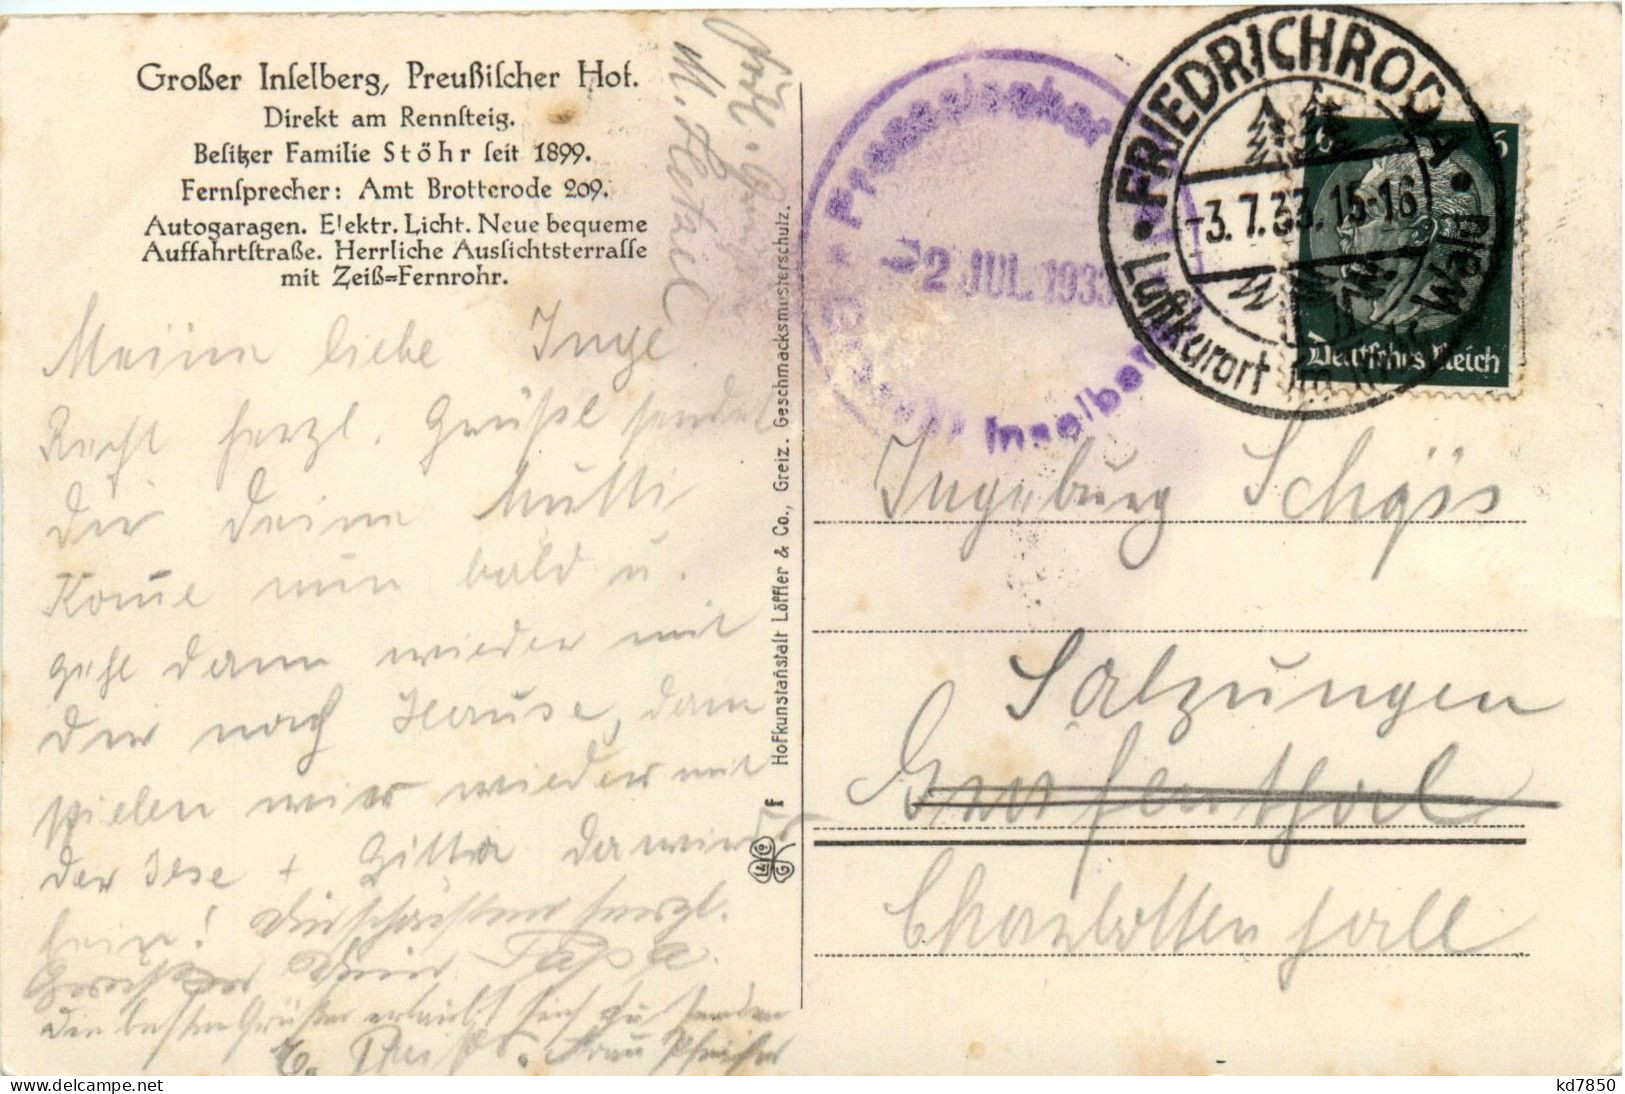 Großer Inselberg, Preußischer Hof.
Direkt am Rennsteig.
Besitzer Familie Stöhr seit 1899.
Fernsprecher: Amt Brotterode 209.
Autogaragen. Elektr. Licht. Neue bequeme
Auffahrtstraße. Herrliche Aussichtsterrasse
mit Zeiß=Fernrohr.
Meine liebe Inge
Recht herzl. Grüße sendet
dir deine Mutti
Kom̅e nun bald u.
gehe dann wieder mit
dir nach Hause, dann
spielen wir wieder mit
der Ilse + Gitta
fein! herzl.
Dein Papa.
Die besten Grüße erlaubt sich zu senden
Frau
Hofkunstanstalt Löffler & Co., Greiz. Geschmacksmusterschutz.
F
L & Co G
2 JUL. 1933
Inselberg
FRIEDRICHRODA
-3.7.33.15-16
Luftkurort im Thür. Wald
6 6
Deutsches Reich
Ingeburg
Salzungen
Charlottenhall
kd7850